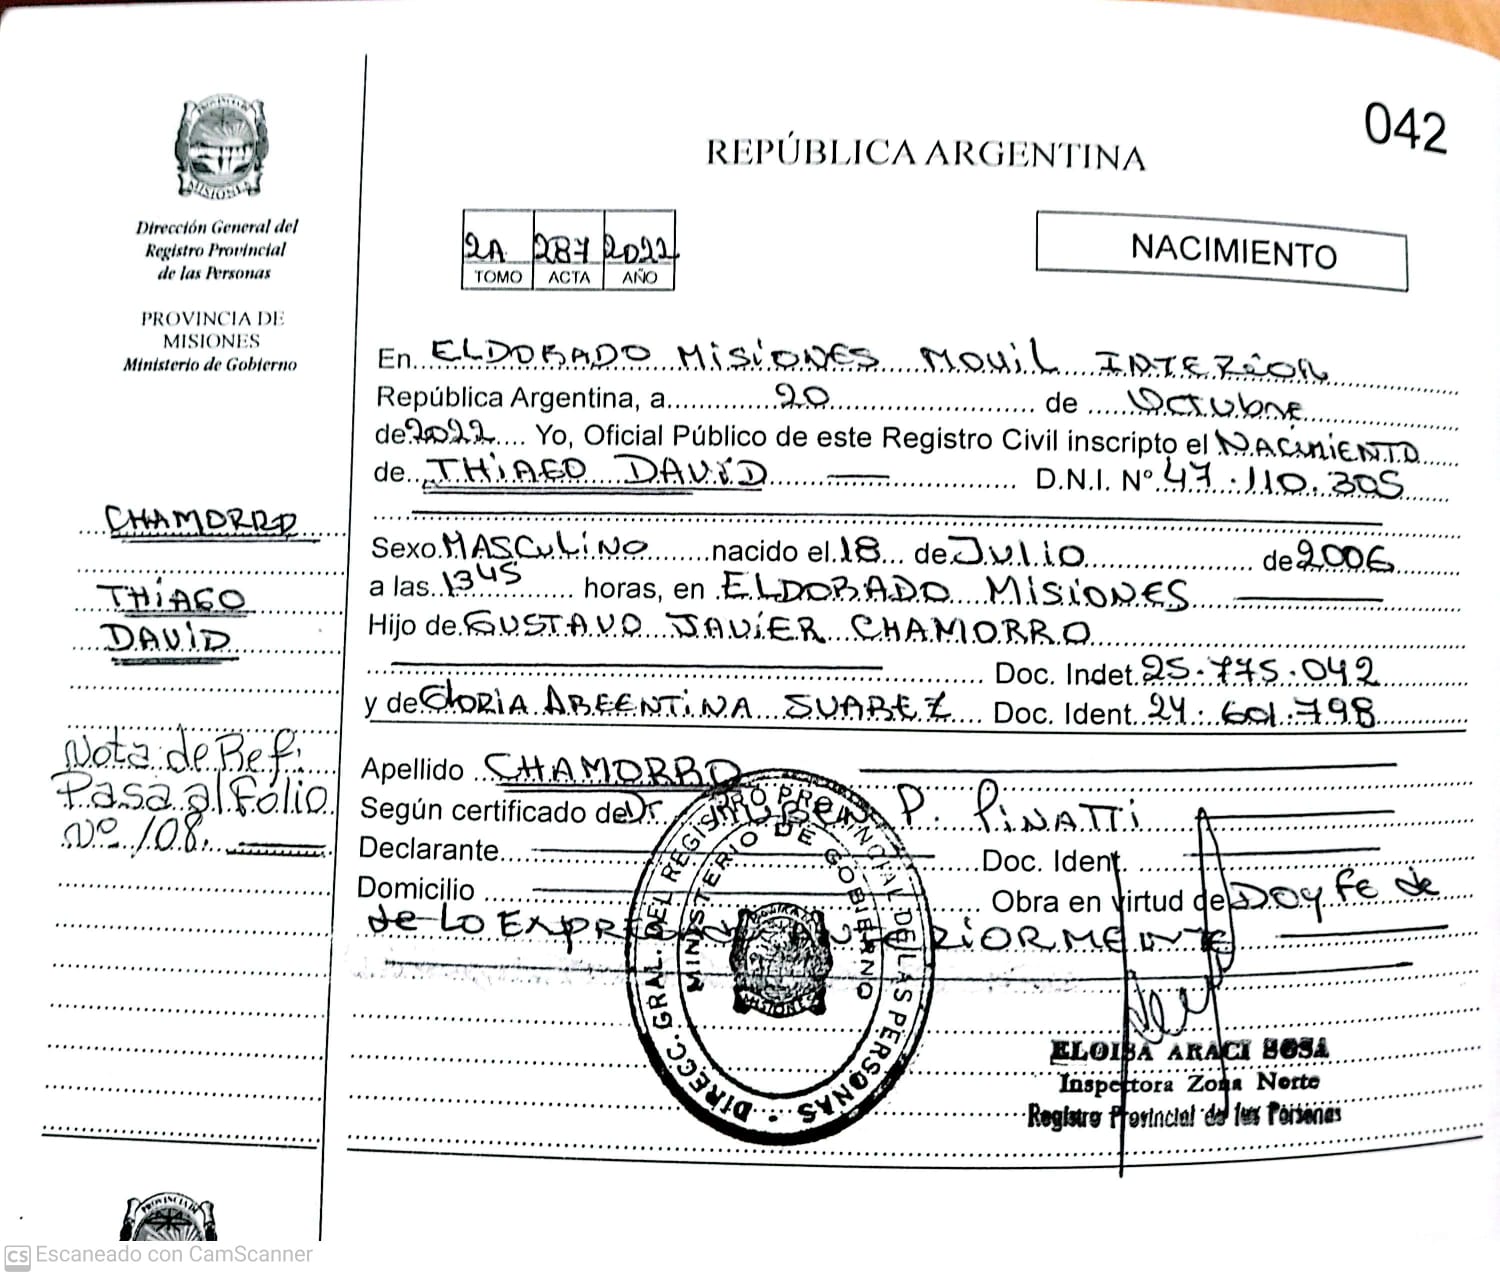 042
REPÚBLICA ARGENTINA
PROVINCIA DE
MISIONES
Dirección General del
Registro Provincial
de las Personas
PROVINCIA DE
MISIONES
Ministerio de Gobierno
2A 287 2022
TOMO ACTA AÑO
NACIMIENTO
En ELDORADO MISIONES MOVIL INTERIOR
República Argentina, a 20 de Octubre
de 2022 Yo, Oficial Público de este Registro Civil inscripto el NACIMIENTO
de THIAGO DAVID D.N.I. Nº 47.110.305
Sexo MASCULINO nacido el 18 de JULIO de 2006
a las 1345 horas, en ELDORADO MISIONES
Hijo de GUSTAVO JAVIER CHAMORRO
Doc. Indet. 25.775.042
y de GLORIA ARGENTINA SUAREZ Doc. Ident. 24.601.798
Apellido CHAMORRO
Según certificado de Dr. RUBEN P. PINATTI
Declarante Doc. Ident.
Domicilio Obra en virtud de DOY FE de
de LO EXPRESADO ANTERIORMEINTE
CHAMORRO
THIAGO
DAVID
Nota de Ref.
Pasa al Folio
Nº 108.
DIRECC. GRAL. DEL REGISTRO PROVINCIAL DE LAS PERSONAS
MINISTERIO DE GOBIERNO
MISIONES
ELOISA ARACI SOSA
Inspectora Zona Norte
Registro Provincial de las Personas
PROVINCIA DE
CS Escaneado con CamScanner